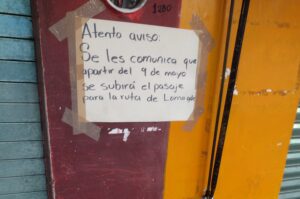 1280
Atento aviso:
Se les comunica que
apartir del 9 de mayo
se subirá el pasaje
para la ruta de